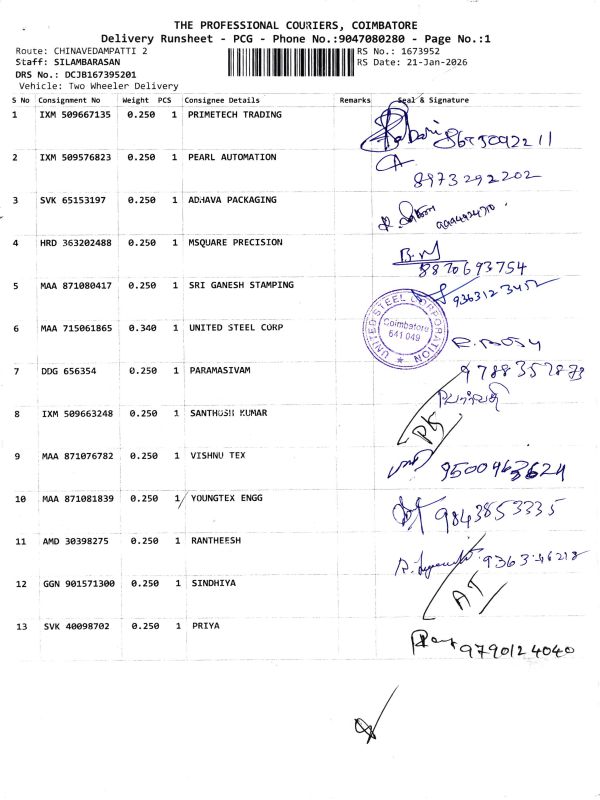 THE PROFESSIONAL COURIERS, COIMBATORE
Delivery Runsheet - PCG - Phone No.:9047080280 - Page No.:1
Route: CHINAVEDAMPATTI 2 RS No.: 1673952
Staff: SILAMBARASAN RS Date: 21-Jan-2026
DRS No.: DCJB167395201
Vehicle: Two Wheeler Delivery
S No Consignment No Weight PCS Consignee Details Remarks Seal & Signature
1 IXM 509667135 0.250 1 PRIMETECH TRADING
2 IXM 509576823 0.250 1 PEARL AUTOMATION
8973292202
3 SVK 65153197 0.250 1 ADHAVA PACKAGING
4 HRD 363202488 0.250 1 MSQUARE PRECISION
8870693754
5 MAA 871080417 0.250 1 SRI GANESH STAMPING
6 MAA 715061865 0.340 1 UNITED STEEL CORP
UNITED STEEL CORPORATION
Coimbatore
641 049
7 DDG 656354 0.250 1 PARAMASIVAM
8 IXM 509663248 0.250 1 SANTHOSH KUMAR
9 MAA 871076782 0.250 1 VISHNU TEX
9500463624
10 MAA 871081839 0.250 1 YOUNGTEX ENGG
9843853335
11 AMD 30398275 0.250 1 RANTHEESH
12 GGN 901571300 0.250 1 SINDHIYA
AT
13 SVK 40098702 0.250 1 PRIYA
9790124040